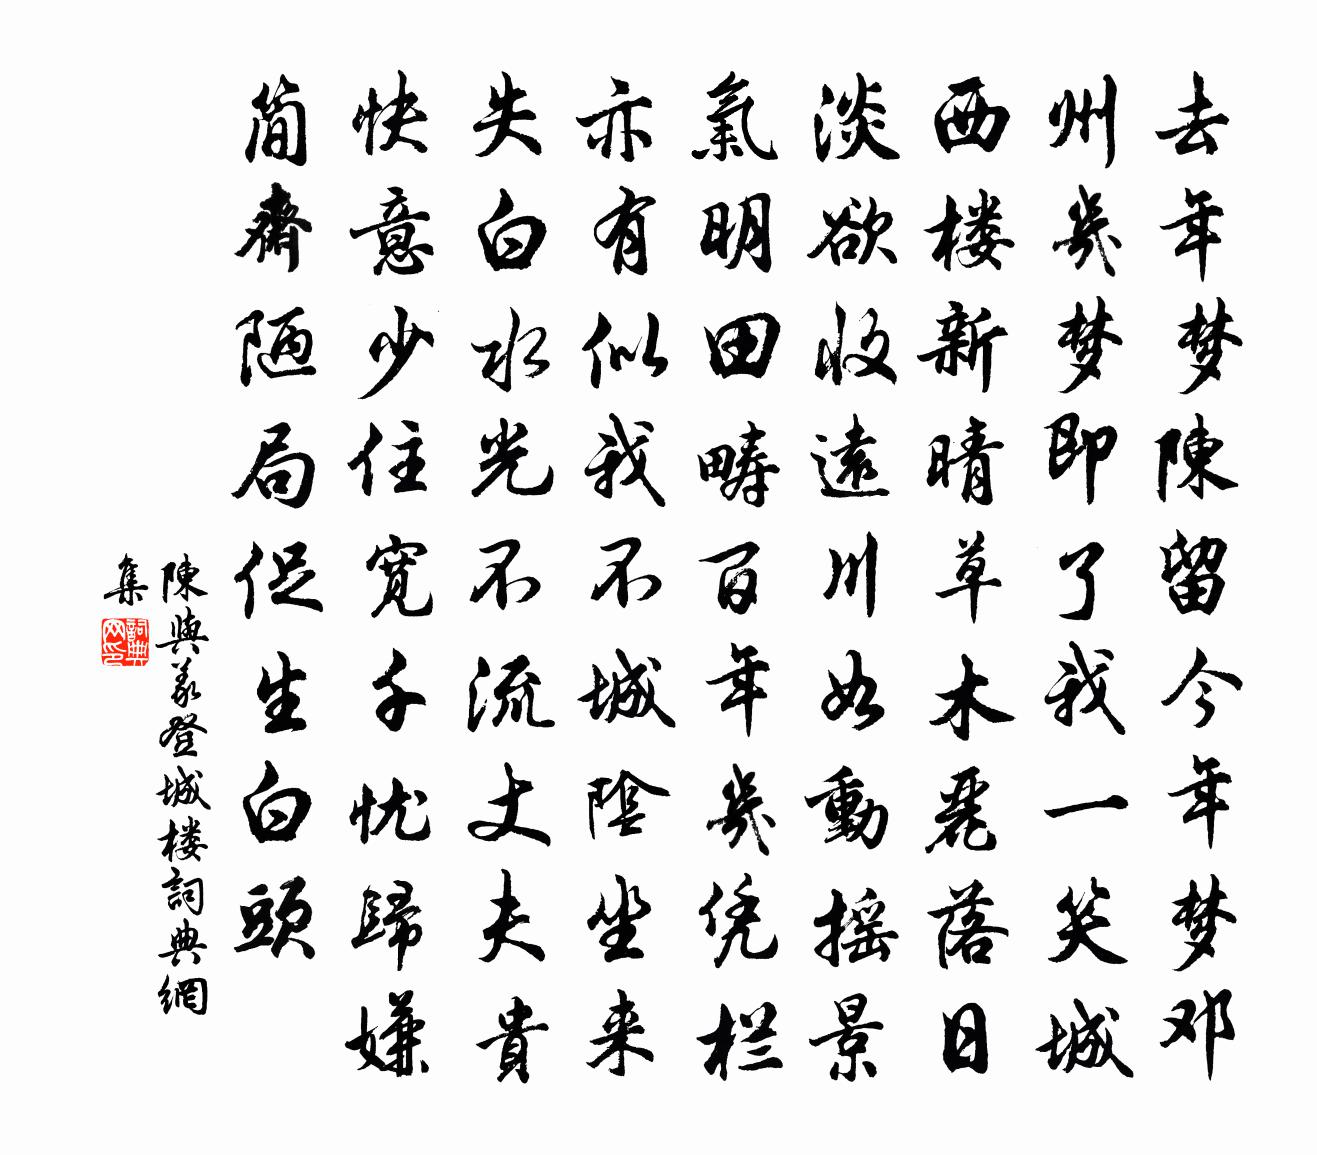 去年梦陳留今年梦邓
州幾梦即了我一笑城
西楼新晴草木麗落日
淡欲收遠川如動摇景
氣明田疇百年幾凭栏
亦有似我不城陰坐来
失白水光不流丈夫貴
快意少住宽千忧歸嫌
简齋陋局促生白頭
陳與義登城楼詞典網
集
詞典
网印